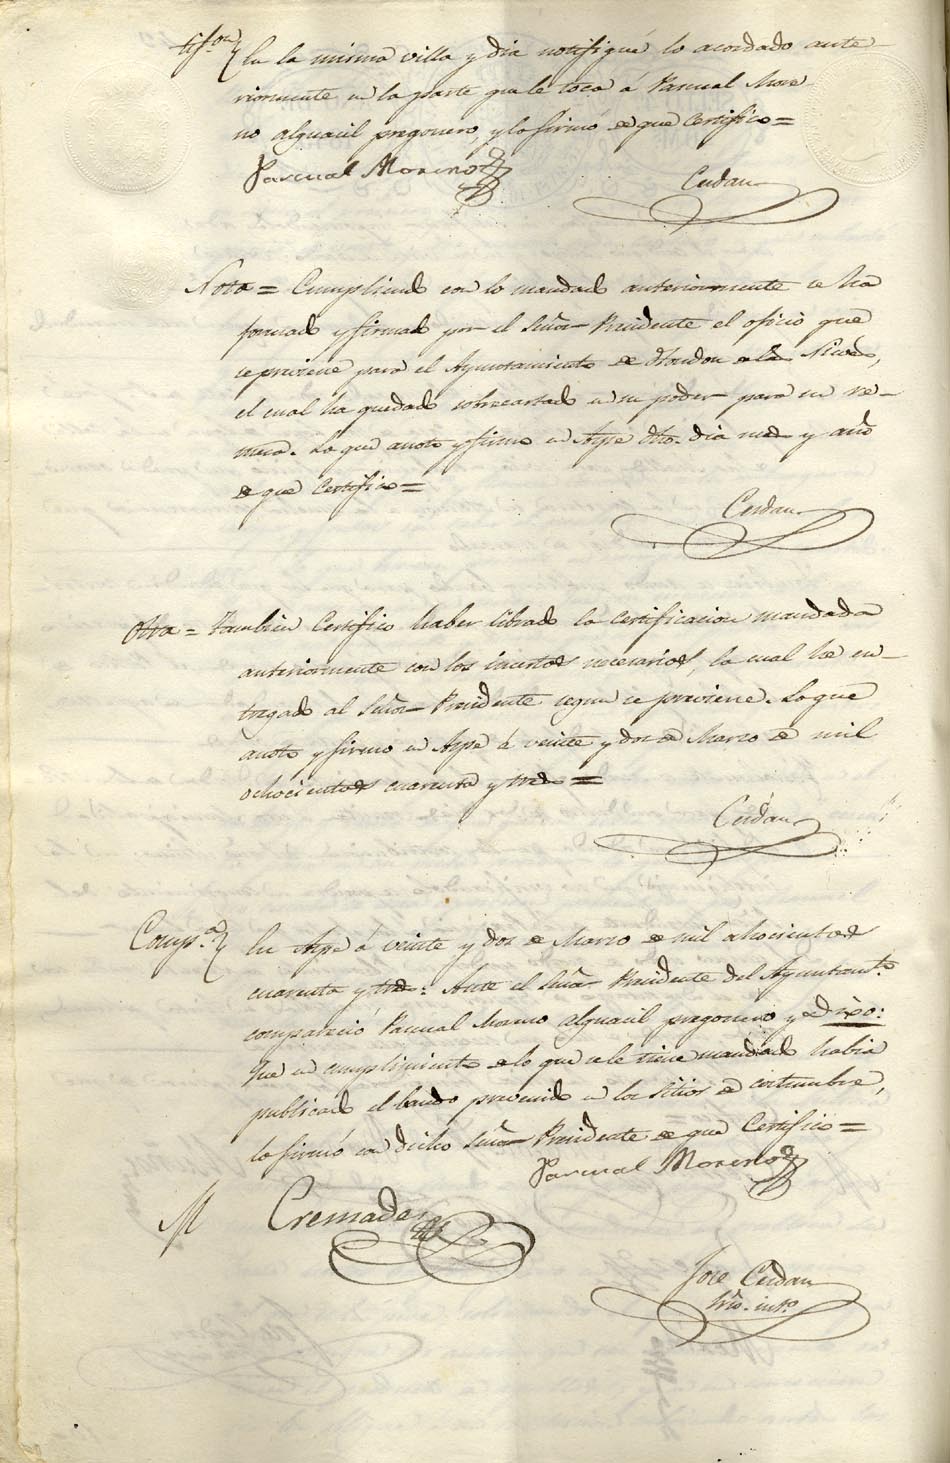 En la misma villa y dia notifiqué lo acordado ante-
riormente en la parte que le toca á Pascual More
no alguacil pregonero, y lo firmó de que Certifico=
Pascual Moreno
Cerdan
Nota = Cumpliendo con lo mandado anteriormente se ha
formado y firmado por el Señor Presidente el oficio que
se previene para el Ayuntamiento de Hondon de las Nieves,
el cual ha quedado sobrecartado en su poder para su re-
mesa. Lo que anoto y firmo en Aspe dho. dia mes y año
de que Certifico=
Cerdan
Otra = Tambien Certifico haber librado la certificacion mandada
anteriormente con los insertos necesarios, la cual he en-
tregado al Señor Presidente segun se previene. Lo que
anoto y firmo en Aspe á veinte y dos de Marzo de mil
ochocientos cuarenta y tres =
Cerdan
Comp.ª En Aspe á veinte y dos de Marzo de mil ochocientos
cuarenta y tres: Ante el Señor Presidente del Ayuntam.to
compareció Pascual Moreno alguacil pregonero y dixo:
Que en cumplimiento de lo que se le tiene mandado habia
publicado el bando prevenido en los sitios de costumbre,
lo firmó con dicho Señor Presidente de que Certifico=
Pascual Moreno
M Cremades
Jose Cerdan
Srio. int.o